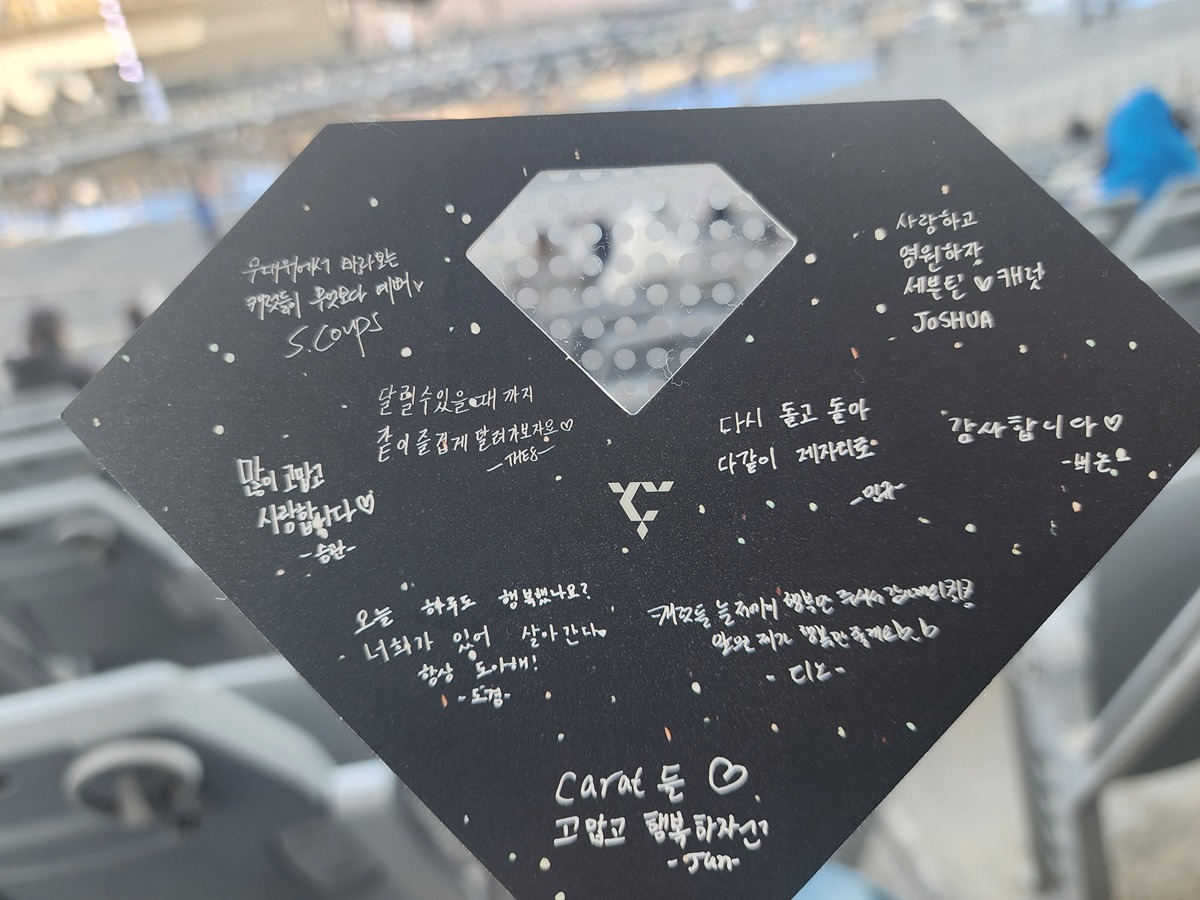 무대위에서 바라보는
캐럿들이 무엇보다 예뻐
S.COUPS
사랑하고
영원하장
세븐틴 ♡ 캐럿
JOSHUA
달릴수있을때 까지
같이 즐겁게 달려가보자요♡
-THE8-
다시 돌고 돌아
다같이 제자리로
-민규-
감사합니다♡
-버논-
많이 고맙고
사랑합니다♡
-승관-
오늘 하루도 행복했나요?
너희가 있어 살아간다
항상 도아해!
-도겸-
캐럿들 늘 행복만
행복만
디노-
Carat 든 ♡
고맙고 행복하자
-Jun-